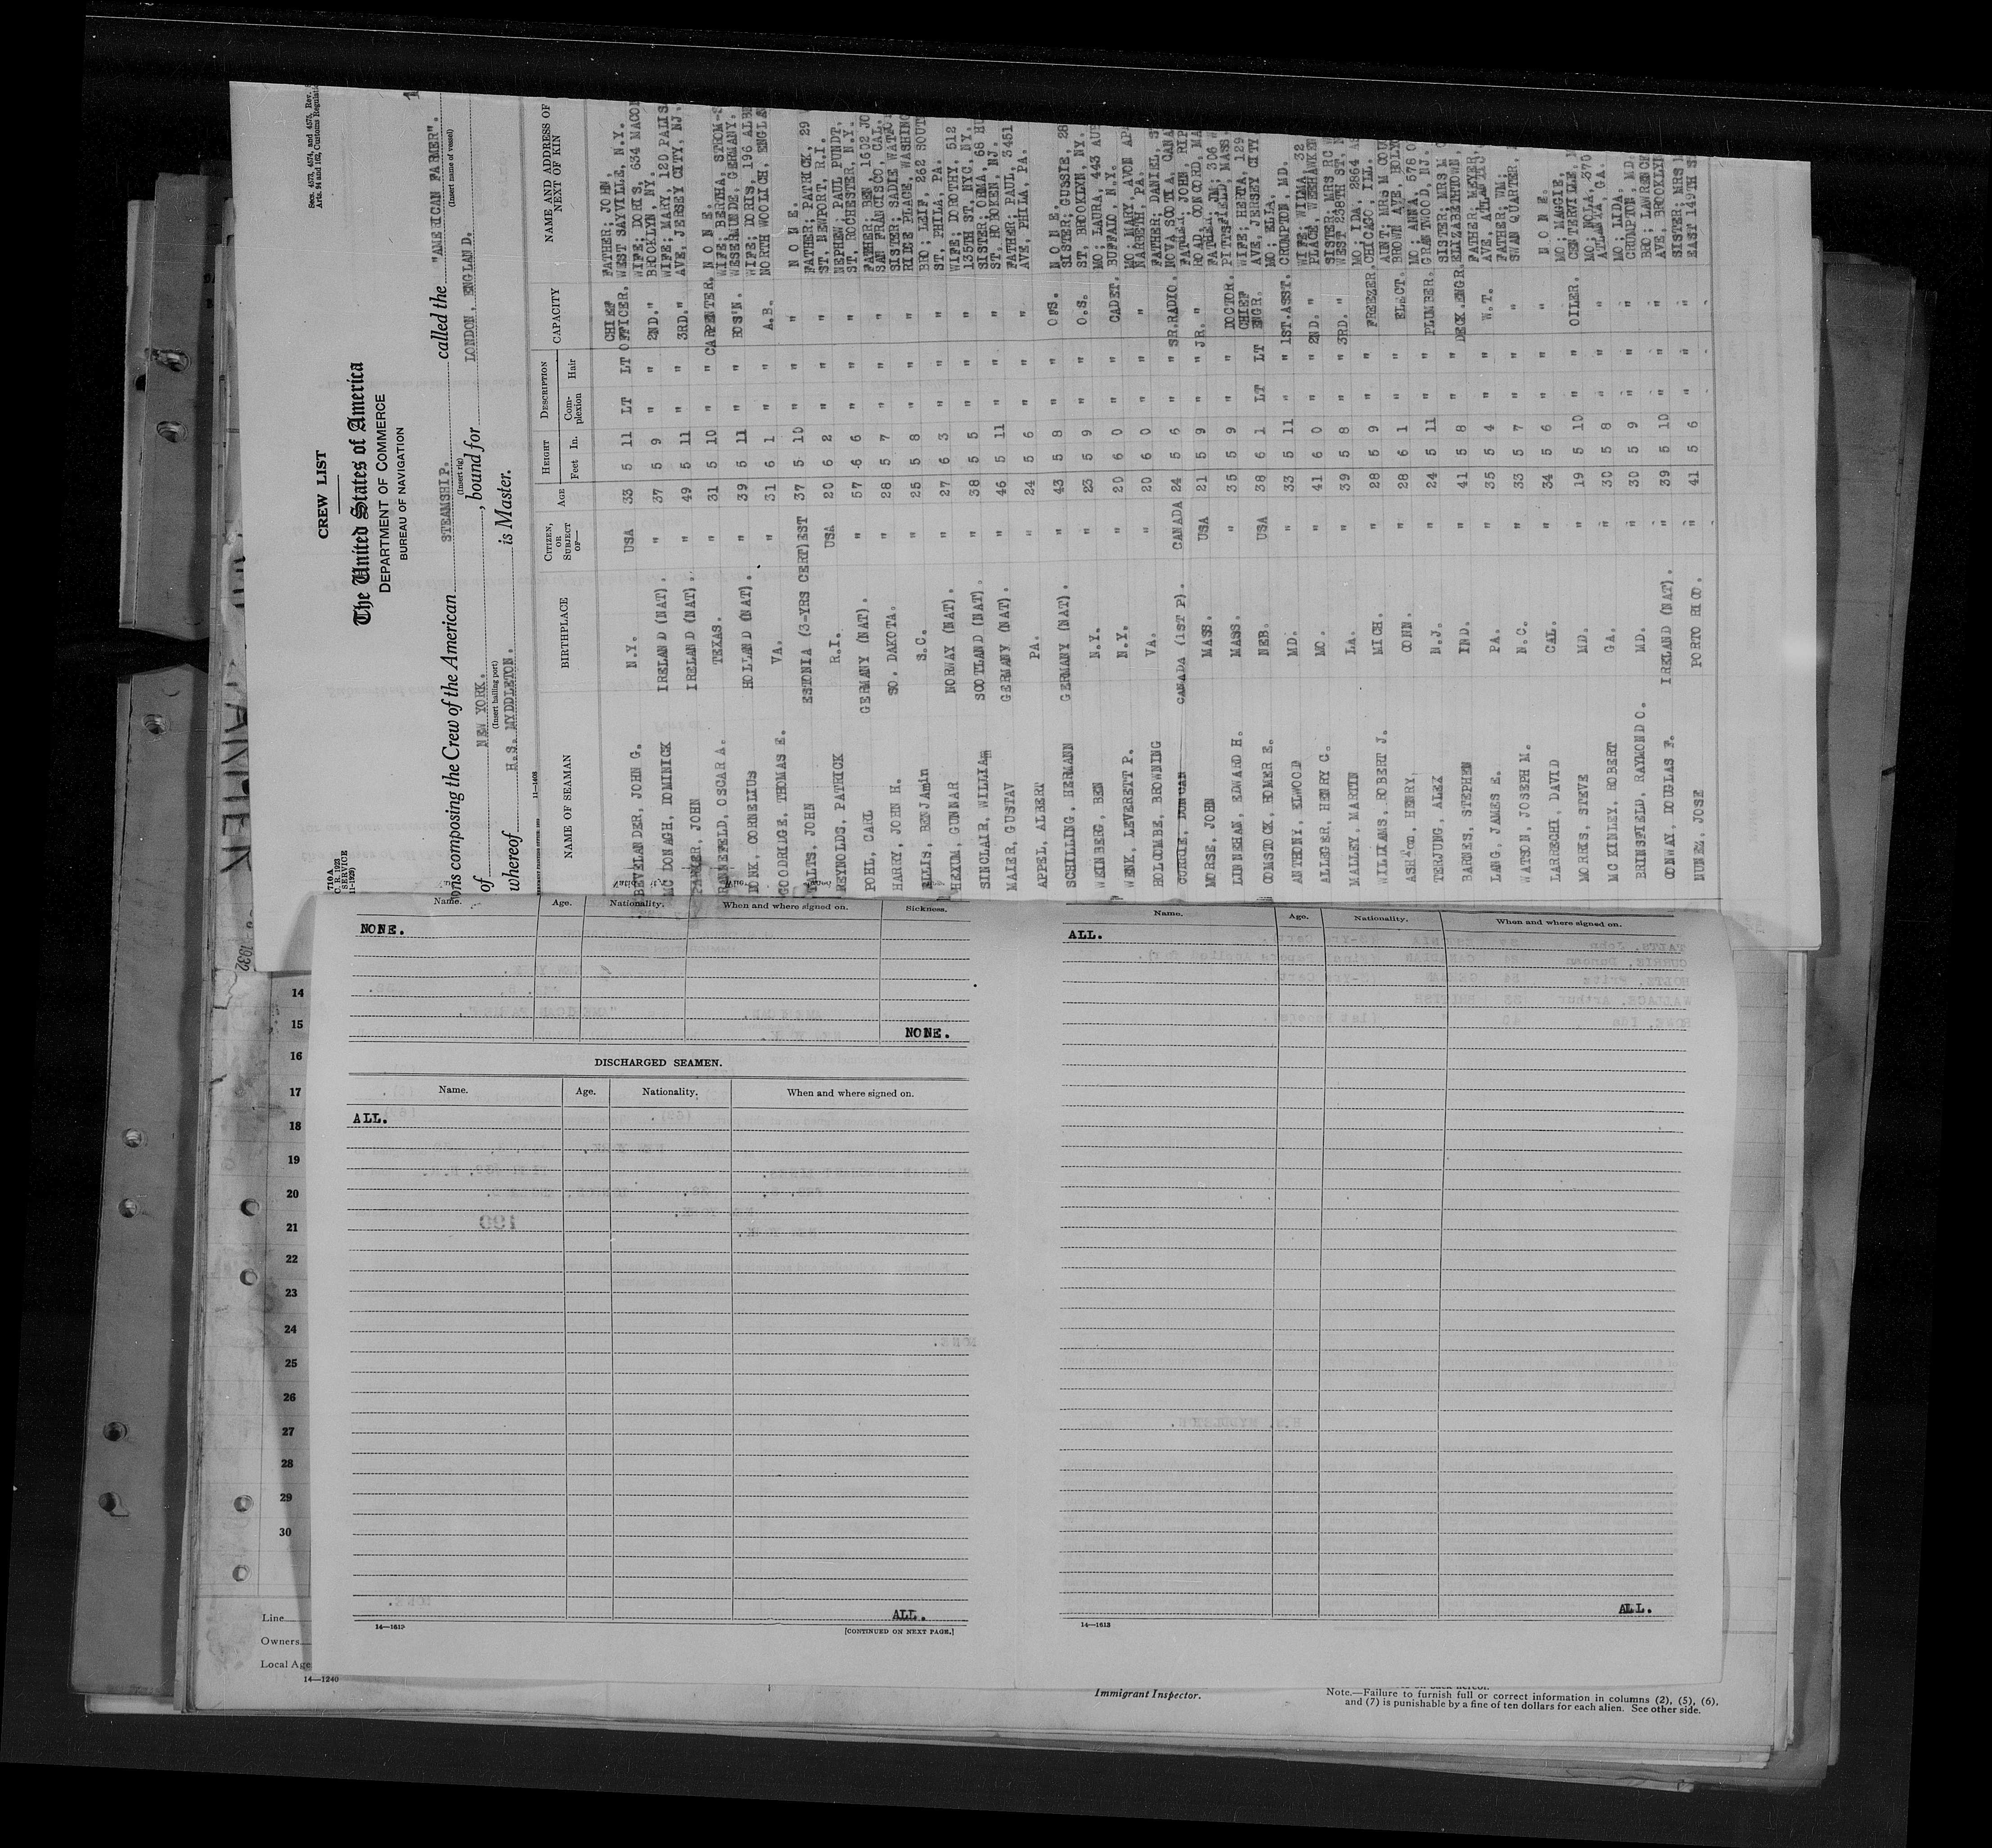 CREW LIST
The United States of America
DEPARTMENT OF COMMERCE
BUREAU OF NAVIGATION
710 A
SERVICE
Secs. 4573, 4574, and 4575, Rev.
Arts. 94 and 162, Customs
ons composing the Crew of the American STEAMSHIP. called the "AMERICAN FARMER".
(Insert rig) (Insert name of vessel)
of NEW YORK. , bound for LONDON, ENGLAND.
(Insert hailing port)
whereof H.S. MYDDLETON. is Master.
NAME OF SEAMAN BIRTHPLACE CITIZEN, OR SUBJECT OF— Age HEIGHT Feet In. DESCRIPTION Complexion Hair CAPACITY NAME AND ADDRESS OF NEXT OF KIN
BEVELANDER, JOHN G. N.Y. USA 33 5 11 LT LT CHIEF OFFICER. FATHER; JOHN, WEST SAYVILLE, N.Y.
MC DONAGH, DOMINICK IRELAND (NAT). " 37 5 9 " " 2ND." WIFE; DORIS, 634 BROOKLYN, NY.
PARKER, JOHN IRELAND (NAT). " 49 5 11 " " 3RD." WIFE; MARY, 120 AVE, JERSEY CITY, NJ.
OSCAR A. TEXAS. " 31 5 10 " " CARPENTER. N O N E.
CORNELIUS HOLLAND (NAT). " 39 5 11 " " BOS'N. WIFE; BERTHA, GERMANY.
GOODRIDGE, THOMAS E. VA. " 31 6 1 " " A.B. WIFE; DORIS, 196 NORTH WOOLICH,
JOHN ESTONIA (3-YRS CERT)EST 37 5 10 " " " N O N E.
REYNOLDS, PATRICK R.I. USA 20 6 2 " " " FATHER; PATRICK, 29 ST, NEWPORT, R.I.
POHL, CARL GERMANY (NAT). " 57 6 6 " " " NEPHEW; PAUL PUNDT, ST, ROCHESTER, N.Y.
HARRY, JOHN H. SO. DAKOTA. " 28 5 7 " " " FATHER; BEN 1602 SAN FRANCISCO, CAL.
ELLIS, BENJAmin S.C. " 25 5 8 " " " SISTER; SADIE RIDGE PLACE,
HAXUM, GUNNAR NORWAY (NAT). " 27 6 3 " " " BRO; LEIF, 262 ST, PHILA, PA.
SINCLAIR, WILLIAM SCOTLAND (NAT). " 38 5 5 " " " WIFE; DOROTHY, 512 135TH ST, NYC, NY.
MAIER, GUSTAV GERMANY (NAT). " 46 5 11 " " " SISTER; ST, HOBOKEN, NJ.
APPEL, ALBERT PA. " 24 5 6 " " " FATHER; PAUL, 3451 AVE, PHILA, PA.
SCHILLING, HERMANN GERMANY (NAT). " 43 5 8 " " N O N E.
WEINBERG, BEN N.Y. " 23 5 9 " " O.S. SISTER; GUSSIE, 28 ST, BROOKLYN, NY.
WENK, LEVERETT P. N.Y. " 20 6 0 " " CADET. MO; LAURA, 443 BUFFALO, N.Y.
HOLCOMBE, BROWNING VA. " 20 6 0 " " " MO; MARY, AVON NARBETH, PA.
CURRIE, DUNCAN CANADA (1ST P). CANADA 24 5 6 " " SR.RADIO. FATHER; DANIEL, NOVA SCOTIA,
MORSE, JOHN MASS. USA 21 5 9 " " JR. " FATHER; JOHN, ROAD, CONCORD,
LINNEHAN, EDWARD H. MASS. " 35 5 9 " " DOCTOR. FATHER; JM; 306 PITTSFIELD, MASS.
COMSTOCK, HOMER E. NEB. USA 38 6 1 LT LT CHIEF ENGR. WIFE; HERTA, 129 AVE, JERSEY CITY
ANTHONY, ELWOOD MD. " 33 5 11 " " 1ST.ASST. MO; ELLA, CRUMPTON, MD.
ALLEGER, HENRY C. MO. " 41 6 0 " " 2ND. " WIFE; WILMA, 32 PLACE,
MALLEY, MARTIN LA. " 39 5 8 " " 3RD. " SISTER; MRS WEST 238TH ST,
WILLIAMS, ROBERT J. MICH. " 28 5 9 " " FREEZER. MO; IDA, 2864 CHICAGO, ILL.
HENRY, CONN. " 28 6 1 " " ELECT. AUNT; MRS M BROWN AVE,
TERJUNG, ALEX N.J. " 24 5 11 " " PLUMBER. MO; ANNA, 578 GRANTWOOD, NJ.
BARNES, STEPHEN IND. " 41 5 8 " " DECK.ENGR. SISTER; MRS M ELIZABETHTOWN,
LANG, JAMES E. PA. " 35 5 4 " " W.T. FATHER; MEYER, AVE,
WATSON, JOSEPH M. N.C. " 33 5 7 " " " FATHER; WM; SWAN QUARTER,
LARRECHI, DAVID CAL. " 34 5 6 " " " N O N E.
MORRIS, STEVE MD. " 19 5 10 " " OILER. MO; MAGGIE, CENTERVILLE,
MC KINLEY, ROBERT GA. " 30 5 8 " " " MO; NOLA, 370 ATLANTA, GA.
BRINSFIELD, RAYMOND C. MD. " 30 5 9 " " " MO; LIDA, CRUMPTON, MD.
CONWAY, DOUGLAS F. IRELAND (NAT). " 39 5 10 " " " BRO; LAWRENCE AVE, BROOKLYN
NUNEZ, JOSE PORTO RICO. " 41 5 6 " " " SISTER; MRS EAST 149TH
Name. Age. Nationality. When and where signed on. Sickness.
NONE.
NONE.
DISCHARGED SEAMEN.
Name. Age. Nationality. When and where signed on.
ALL.
ALL.
14—1613
[CONTINUED ON NEXT PAGE.]
Name. Age. Nationality. When and where signed on.
ALL.
ALL.
14—1613
14
15
16
17
18
19
20
21
22
23
24
25
26
27
28
29
30
Line
Owners
Local Age
14—1240
Immigrant Inspector.
Note.—Failure to furnish full or correct information in columns (2), (5), (6),
and (7) is punishable by a fine of ten dollars for each alien. See other side.